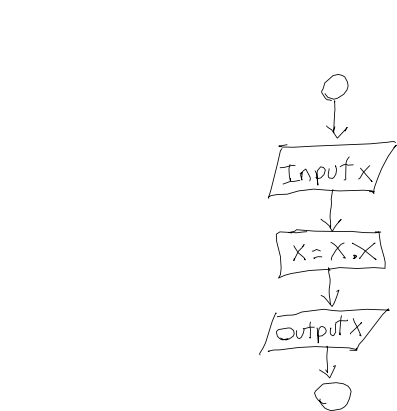 Input x
x = x.x
Output x